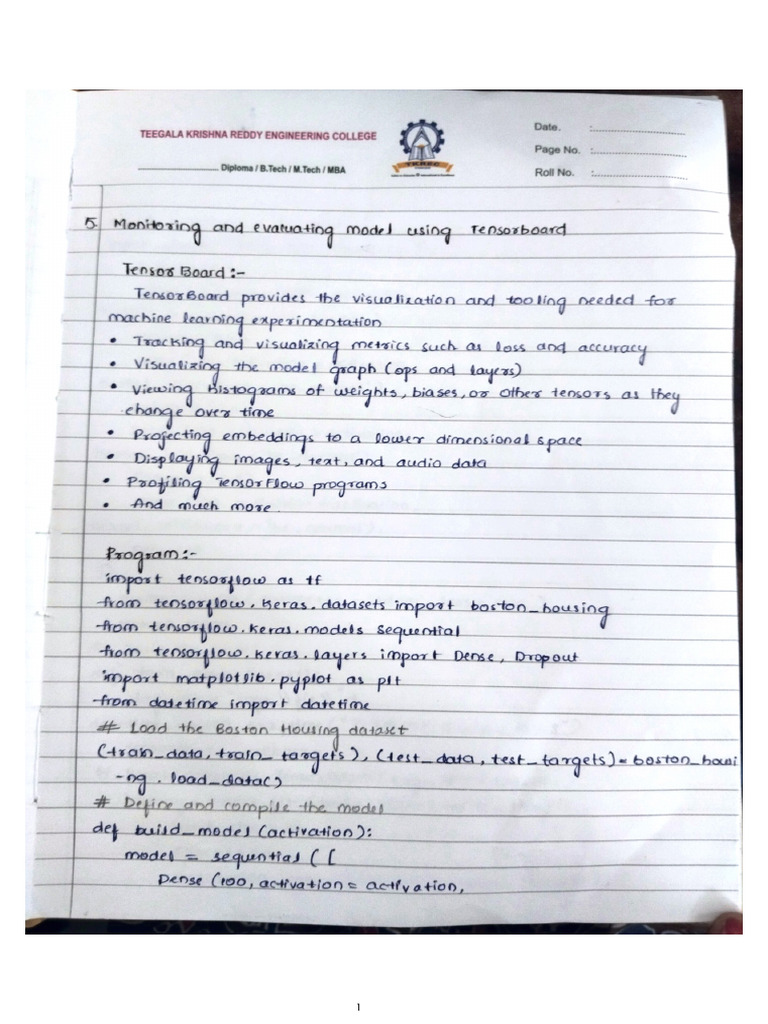 TEEGALA KRISHNA REDDY ENGINEERING COLLEGE
Diploma / B.Tech / M.Tech / MBA
TKREC
Date. :
Page No. :
Roll No. :
5. Monitoring and evaluating model using Tensorboard
Tensor Board :-
TensorBoard provides the visualization and tooling needed for
machine learning experimentation
• Tracking and visualizing metrics such as loss and accuracy
• Visualizing the model graph (ops and layers)
• Viewing histograms of weights, biases, or other tensors as they
change over time
• Projecting embeddings to a lower dimensional space
• Displaying images, text, and audio data
• Profiling TensorFlow programs
• And much more.
Program :-
import tensorflow as tf
from tensorflow.keras.datasets import boston_housing
from tensorflow.keras.models Sequential
from tensorflow.keras.layers import Dense, Dropout
import matplotlib.pyplot as plt
from datetime import datetime
# Load the Boston Housing dataset
(train_data, train_targets), (test_data, test_targets) = boston_housi
-ng.load_data()
# Define and compile the model
def build_model(activation):
model = sequential ([
Dense (100, activation = activation,
1